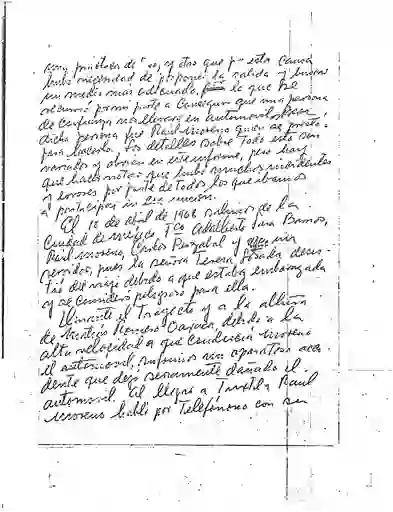 muy prácticas de " so, y otro que por esta causa
hubo necesidad de posponer la salida y buscar
un medio más adecuado, por lo que se
recurrió por mi parte a conseguir que una persona
de confianza nos llevara en automóvil
dicha persona fue Raúl Moreno quien se prestó
para hacerlo. Los detalles sobre todo esto son
narrados y obran en este informe, pero hay
que hacer notar que hubo muchos incidentes
y errores por parte de todos los que íbamos
a participar en esa misión.
El 10 de abril de 1968 salimos de la
Ciudad de México, Tco Adalberto Pina Barnos,
Raúl Moreno, Carlos y un
servidor, pues la señora Teresa Posada desis-
tió del viaje debido a que estaba embarazada
y se consideró peligroso para ella.
Durante el trayecto y a la altura
de Matías Romero Oaxaca, debido a la
alta velocidad a que conducía Moreno
el automóvil, sufrimos un aparatoso acci-
dente que dejó seriamente dañado el
automóvil. Al llegar a Tuxtla Raúl
Moreno habló por Teléfono con su